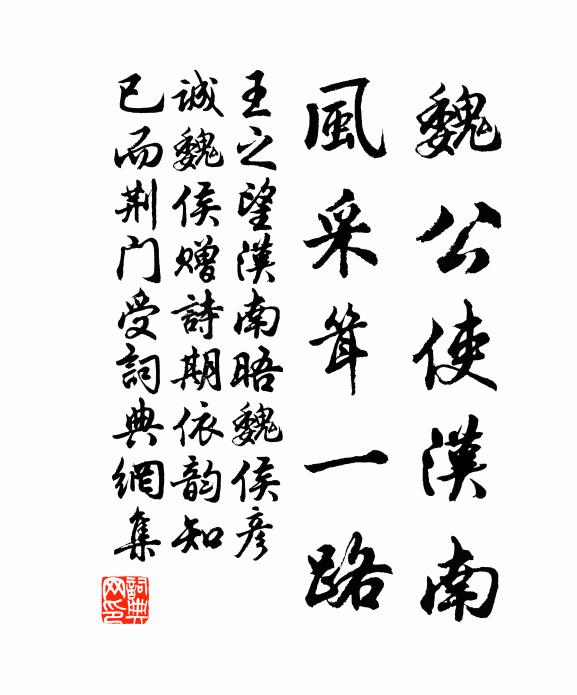 魏公使漢南
風采耸一路
王之望漢南晤魏侯彦
誠魏侯贈詩期依韵知
已而荆门受詞典網集
詞典网印